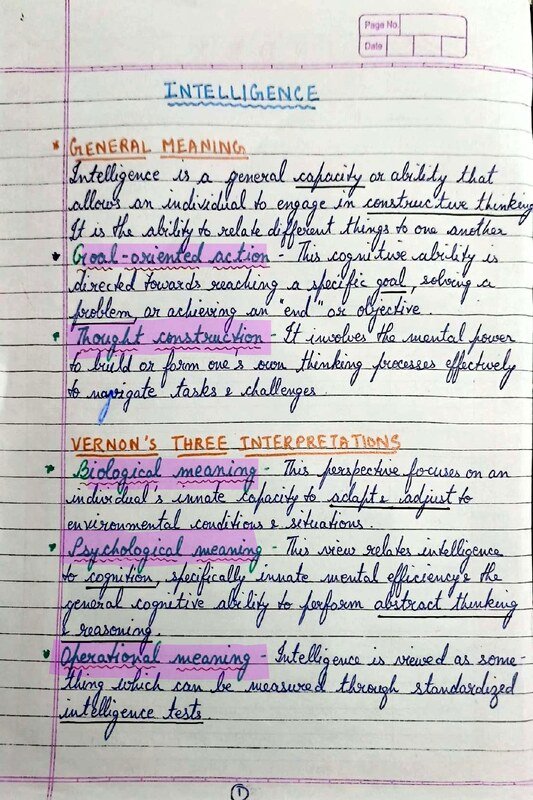 Page No.
Date
INTELLIGENCE
* GENERAL MEANING
Intelligence is a general capacity or ability that
allows an individual to engage in constructive thinking
It is the ability to relate different things to one another
Goal-oriented action - This cognitive ability is
directed towards reaching a specific goal, solving a
problem, or achieving an "end" or objective.
Thought construction - It involves the mental power
to build or form one's own thinking processes effectively
to navigate tasks & challenges.
VERNON'S THREE INTERPRETATIONS
Biological meaning - This perspective focuses on an
individual's innate capacity to adapt & adjust to
environmental conditions & situations.
Psychological meaning - This view relates intelligence
to cognition, specifically innate mental efficiency & the
general cognitive ability to perform abstract thinking
& reasoning.
Operational meaning - Intelligence is viewed as some-
thing which can be measured through standardized
intelligence tests.
1